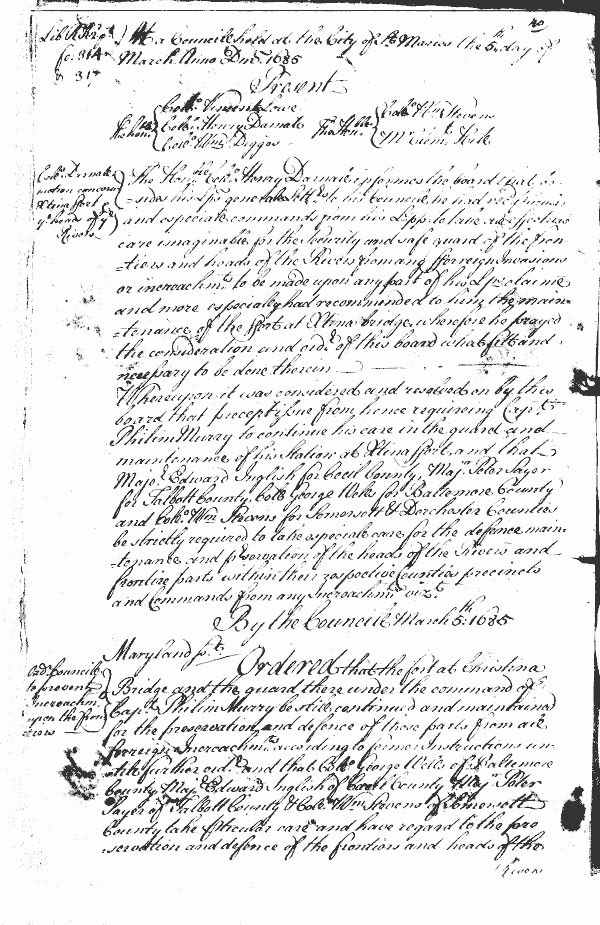 40
Lib R Fro
fo: 314
& 31
At a Councill held at the City of St. Maries the 5th. day of
March Anno Dni. 1685
Present
The honble
Collo. Vincent Lowe
Collo. Henry Darnall
Collo. Wm. Digges
The Honble
Collo. Wm. Stevens
Mr. Clemt. Hill
Collo. Darnall
motion concern
Xtina fort &
ye. heads of ye.
Rivers
The Honble. Collo. Henry Darnall informes the board that be-
-sides his Lpps generall to his Councill, he had
and especiall commands from his Lpp. to take
care imaginable for the Security and safe guard of the fron
-tiers and heads of the Rivers from any fforreign Invasions
or incroachmts. to be made upon any part of his Lpps claime
and more especially had recommended to him the main-
-tenance of the ffort at Xtina bridge, wherefore he prayed
the consideration and ordr. of this board what fitt and
necessary to be done therein
Whereupon it was considered and resolved on by this
board that precepts issue from hence requireing Capt.
Philip Murry to continue his care in the guard and
maintenance of his Station at Xtina ffort, and that
Major. Edward Inglish for Cecil County, Majr. Peter Sayer
for Talbott County, Collo. George Wells for Baltemore County
and Collo. Wm. Stevens for Somersett & Dorchester Counties
be strictly required to take speciale care for the defence main-
-tenance and preservation of the heads of the Rivers and
frontire parts within their respective Counties precincts
and Commands from any Incroachmts.
By the Councill March 5th: 1685
Ordr. Councill
to prevent
Incroachm.
upon the fron
tiers
Maryland sst.
Ordered that the fort at Christina
Bridge and the guard there under the command of
Capt. Philip Murry be still continued and maintained
for the preservation and defence of those parts from all
fforreign Incroachmts. according to former Instructions un-
-till further ordr. and that Collo. George Wells of Baltimore
County Majr. Edward Inglish of Cecil County Majr. Peter
Sayer of Talbott County & Collo. Wm. Stevens of Somersett
County take pticular care and have regard to the pre
-servation and defence of the frontiers and heads of the
Rivers